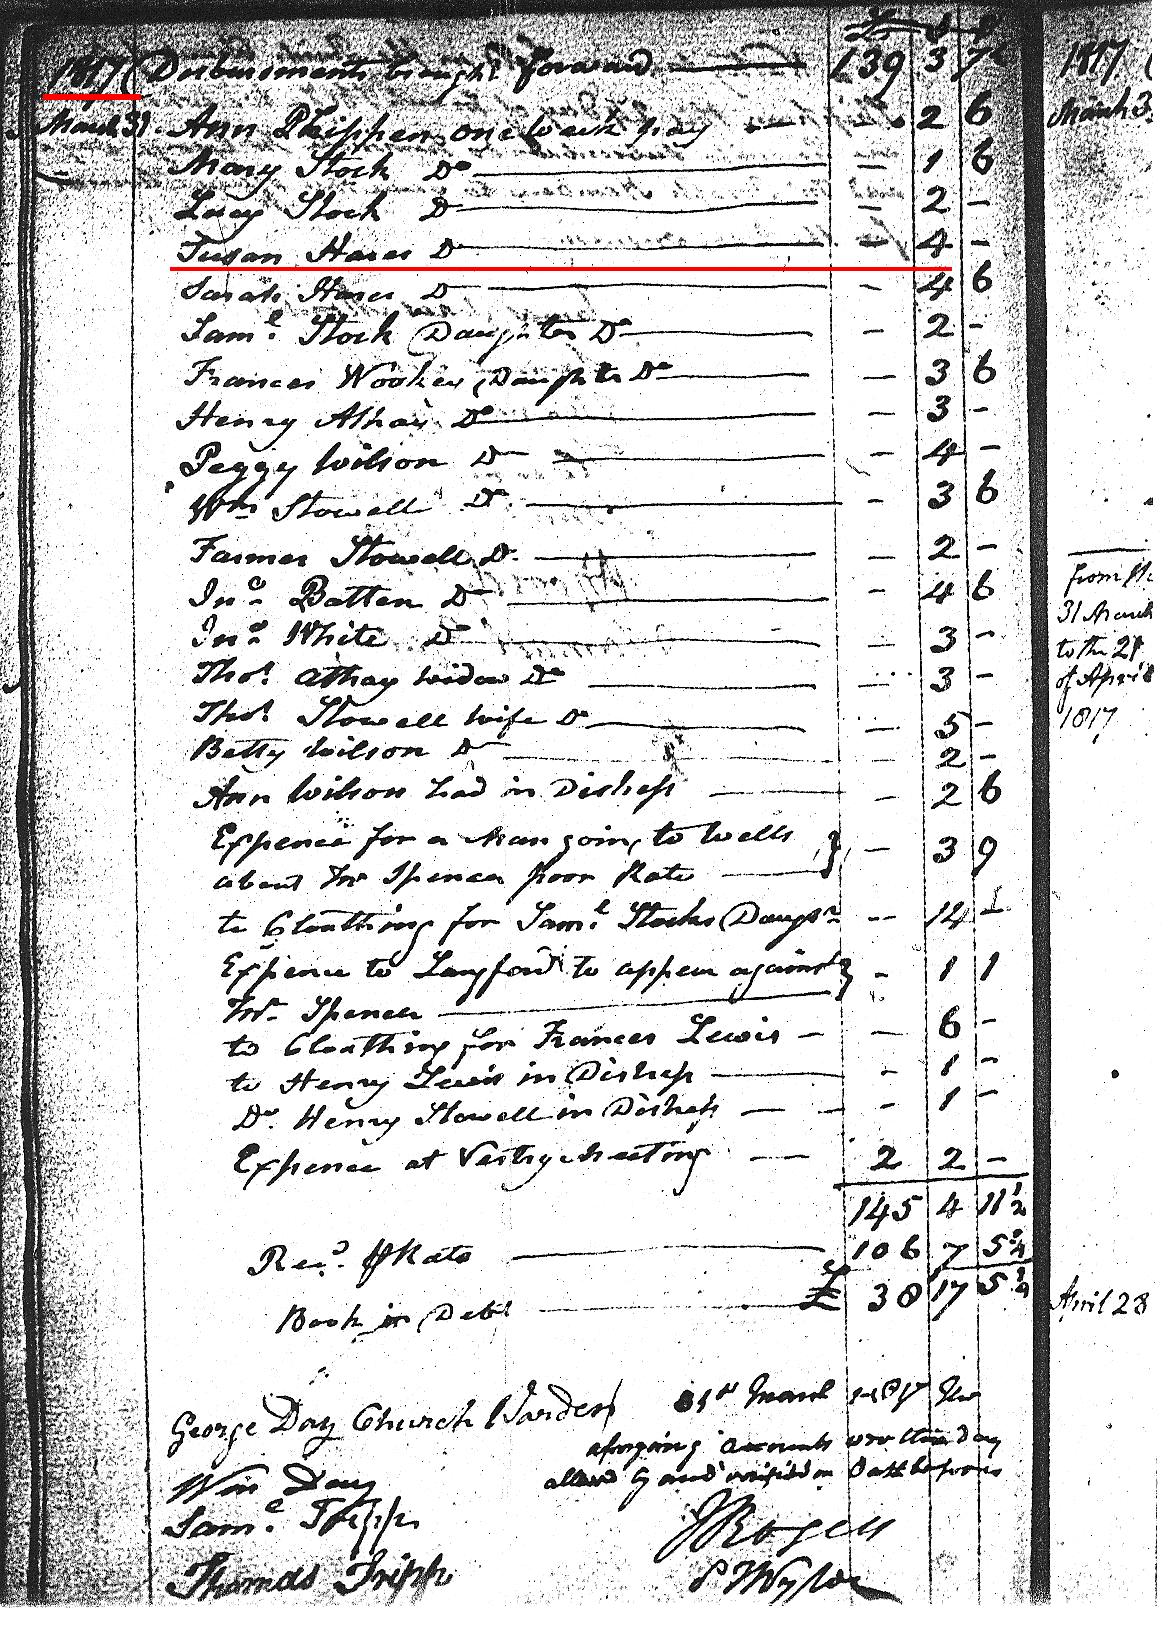 £ s d
1817 Disbursments brought forward 139 3 7
March 31 Ann Phippen one week pay - 2 6
Mary Stock Do - 1 6
Lucy Stock Do - 2 -
Susan Hares Do - 4 -
Sarah Hares Do - 4 6
Saml. Stock Daughter Do - 2 -
Frances Wookey Daughtr Do - 3 6
Henry Athay Do - 3 -
Peggy Wilson Do - 4 -
Wm Stowell Do - 3 6
Farmer Stowell Do - 2 -
Jno. Batten Do - 4 6
Jno. White Do - 3 -
Thos. Athay widow Do - 3 -
Thos. Stowell wife Do - 5 -
Betty Wilson Do - 2 -
Ann Wilson had in Distress - 2 6
Expence for a Man going to Wells
about Spencer poor Rate - 3 9
to Cloathing for Saml. Stocks Daugr - 14
Expence to Langford to appear against - 1 1
Spencer
to Cloathing for Frances Lewis - 6 -
to Henry Lewis in Distress - 1 -
Do. Henry Stowell in Distress - 1 -
Expence at Vestry Meeting 2 2 -
145 4 11½
Recd. Rate 106 7 5¾
Book in Debt £ 38 17 5¾
George Day Church Warden
Wm Day
Saml. Tripp
Thomas Tripp
31st March 1817 The
aforgoing Accounts were this day
allowed by and verified on Oath before
J Rogers
P T Wylson
1817
March 3
from
31 March
to the 28
of April
1817
April 28